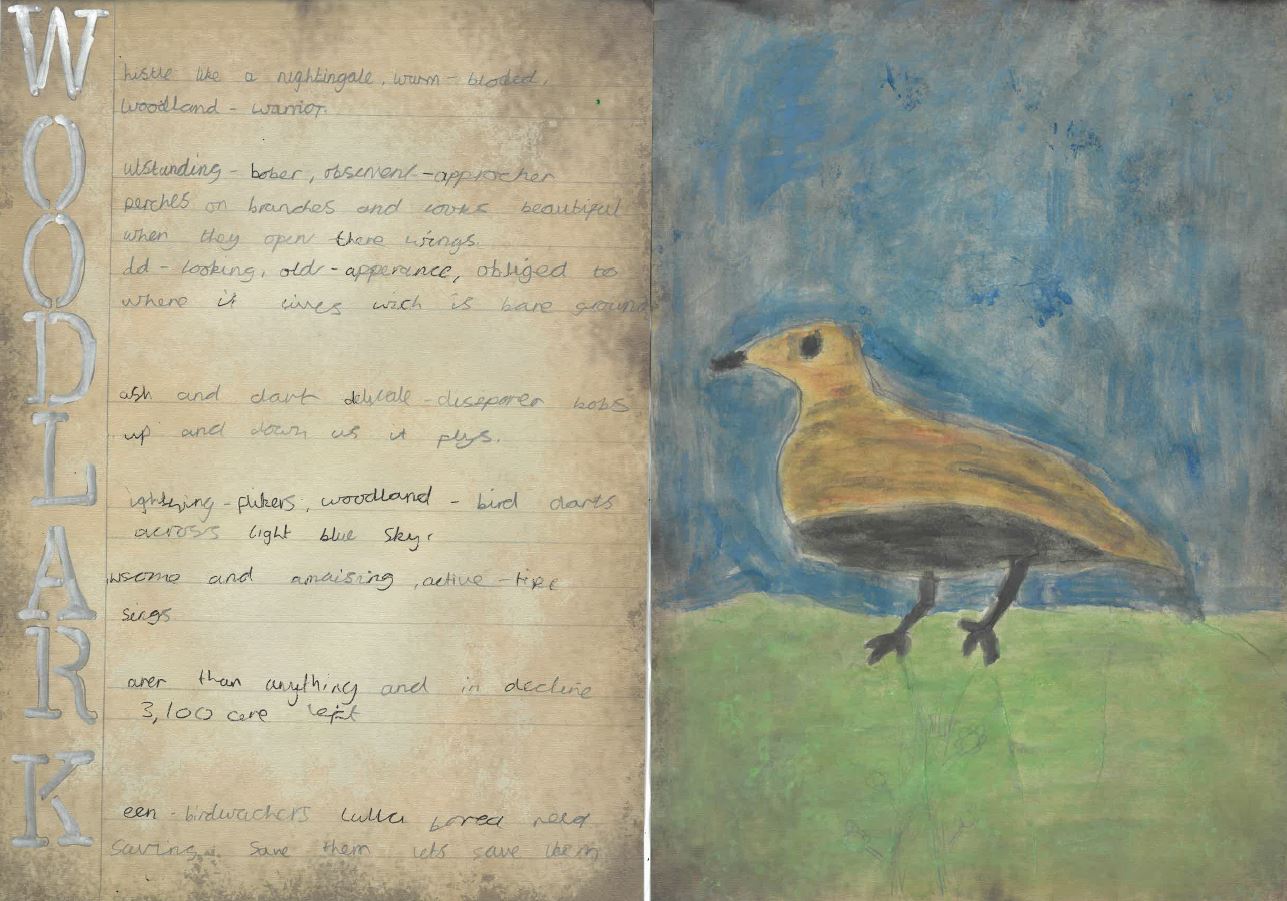 WOODLARK
histle like a nightingale, warm-bloded,
woodland - warrior.
utstanding - bober, observent - approcher
perches on branches and looks beautiful
when they open there wings.
dd - looking, old - apperance, obliged to
where it lives wich is bare ground
ash and dart delicate - diseperer bobs
up and down as it flys.
ightning - flikers, woodland - bird darts
across light blue sky.
wsome and amaising, active - tipe
sings
arer than anything and in decline
3,100 are left
een - birdwachers lulla borea need
saving. Save them lets save them